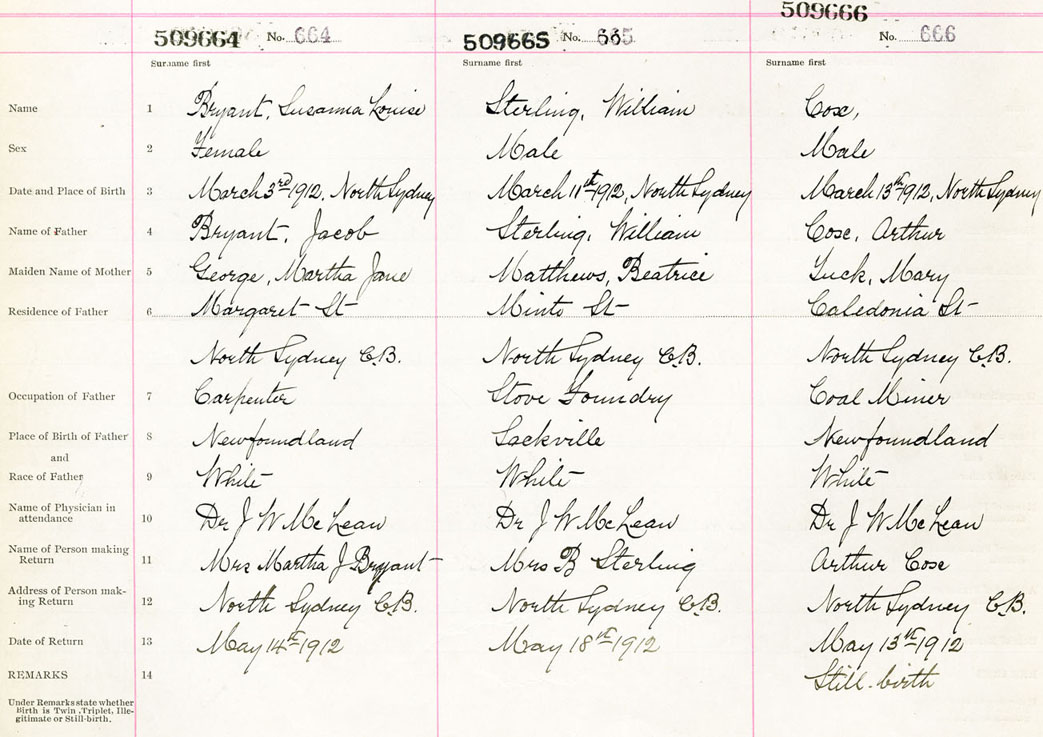 509664 No. 664 509665 No. 665 509666 No. 666
Surname first Surname first Surname first
Name 1 Bryant, Susanna Louise Sterling, William Coxe,
Sex 2 Female Male Male
Date and Place of Birth 3 March 3rd 1912, North Sydney March 11th 1912, North Sydney March 13th 1912, North Sydney
Name of Father 4 Bryant, Jacob Sterling, William Coxe, Arthur
Maiden Name of Mother 5 George, Martha Jane Matthews, Beatrice Luck, Mary
Residence of Father 6 Margaret St Minto St Caledonia St
North Sydney C.B. North Sydney C.B. North Sydney C.B.
Occupation of Father 7 Carpenter Stove Foundry Coal Miner
Place of Birth of Father 8 Newfoundland Sackville Newfoundland
and
Race of Father 9 White White White
Name of Physician in
attendance 10 Dr J W McLean Dr J W McLean Dr J W McLean
Name of Person making
Return 11 Mrs Martha J Bryant Mrs B Sterling Arthur Coxe
Address of Person mak-
ing Return 12 North Sydney C.B. North Sydney C.B. North Sydney C.B.
Date of Return 13 May 14th 1912 May 18th 1912 May 13th 1912
REMARKS 14 Still-birth
Under Remarks state whether
Birth is Twin, Triplet, Ille-
gitimate or Still-birth.